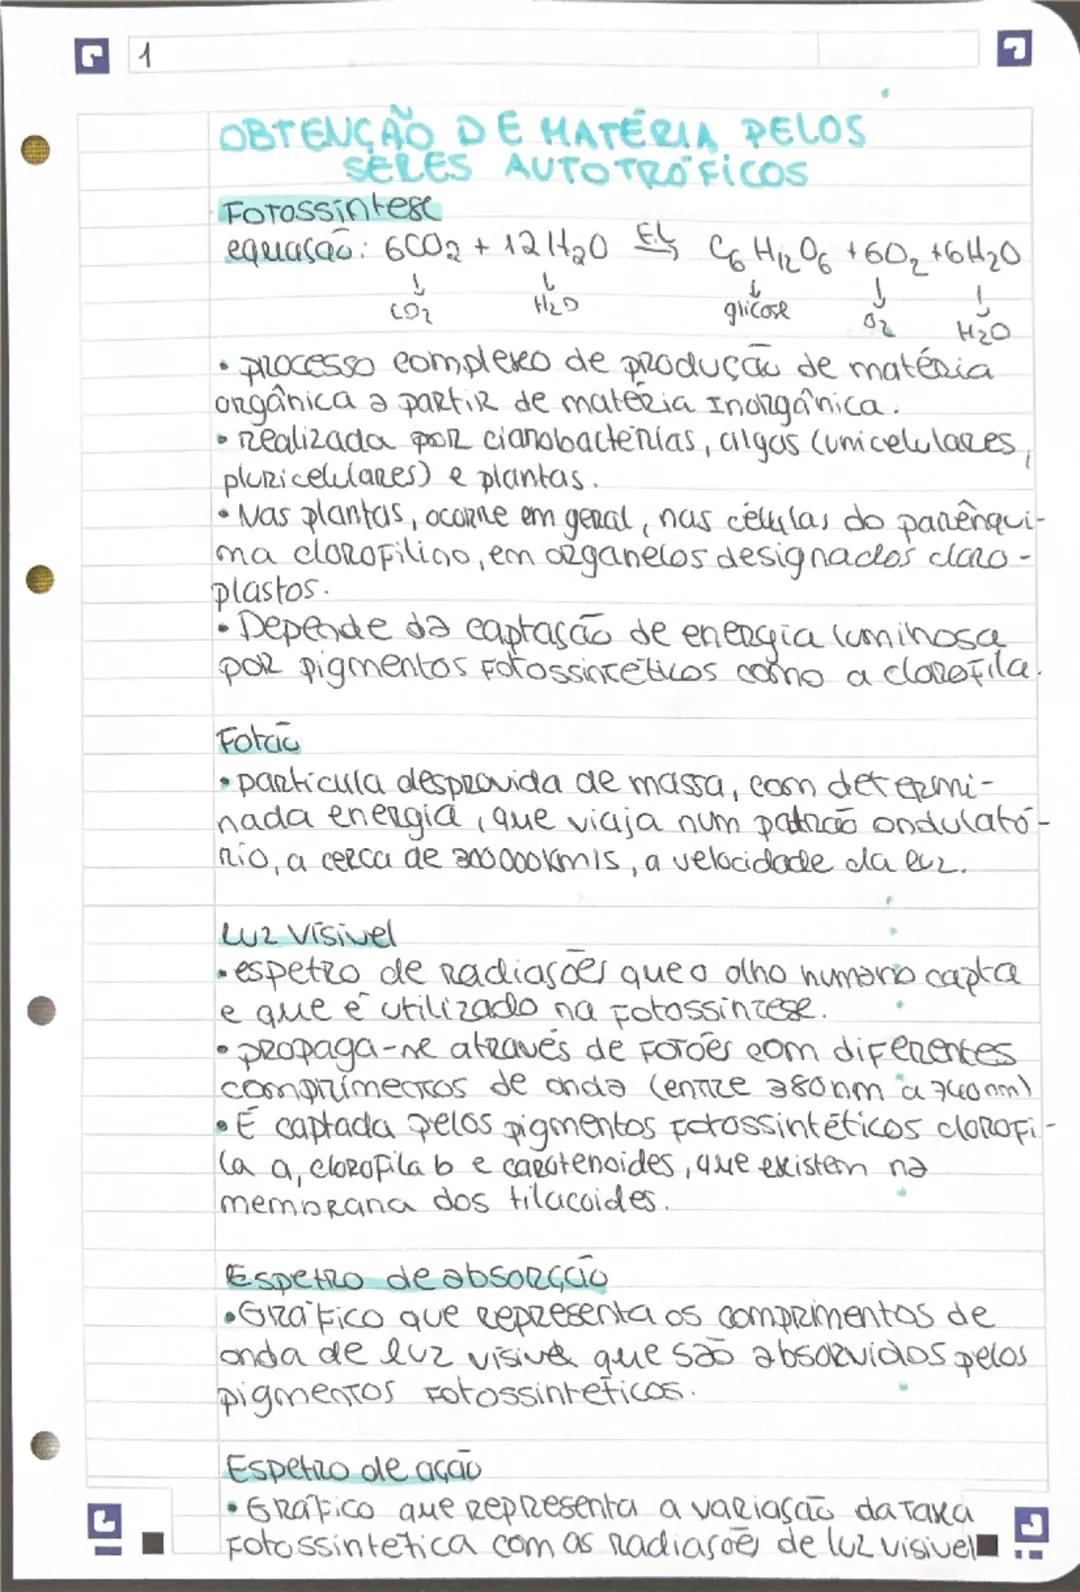 1
OBTENÇÃO DE MATÉRIA PELOS
SERES AUTOTRÓFICOS
Fotossíntese
equação: 6CO₂ + 12H₂O E.L→ C₆H₁₂O₆ + 6O₂ + 6H₂O
↓ ↓ ↓ ↓ ↓
CO₂ H₂O glicose O₂ H₂O
• processo complexo de produção de matéria
orgânica a partir de matéria Inorgânica.
• realizada por cianobactérias, algas (unicelulares,
pluricelulares) e plantas.
• Nas plantas, ocorre em geral, nas células do parênqui-
ma clorofilino, em organelos designados cloro-
plastos.
• Depende da captação de energia luminosa
por pigmentos fotossintéticos como a clorofila.
Fotão
• partícula desprovida de massa, com determi-
nada energia, que viaja num padrão ondulató-
rio, a cerca de 300 000 km/s, a velocidade da luz.
Luz Visível
• espetro de radiações que o olho humano capta
e que é utilizado na fotossíntese.
• propaga-se através de fotões com diferentes
comprimentos de onda (entre 380nm a 740nm)
• É captada pelos pigmentos fotossintéticos clorofi-
la a, clorofila b e carotenoides, que existem na
membrana dos tilacoides.
Espetro de absorção
• Gráfico que representa os comprimentos de
onda de luz visível que são absorvidos pelos
pigmentos fotossintéticos.
Espetro de ação
• Gráfico que representa a variação da taxa
fotossintética com as radiações de luz visível